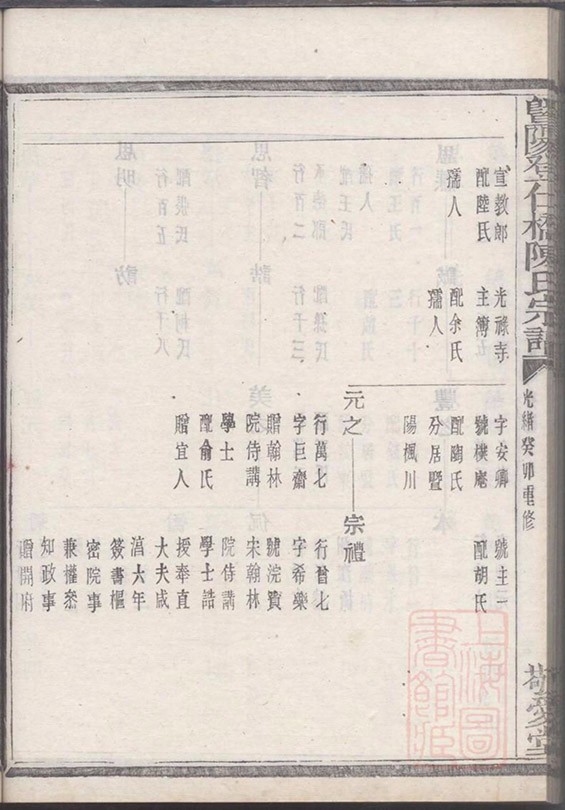 暨陽登仕橋陳氏宗譜
光緒癸卯重修
敬愛堂
宣教郎
配陸氏
孺人
光祿寺
主簿
配余氏
孺人
字安卿
號樸庵
配陶氏
分居暨
陽楓川
號主一
配胡氏
元之
行萬七
字巨齋
贈翰林
院侍講
學士
配俞氏
贈宜人
宗禮
行晉七
字希樂
號浣賢
宋翰林
院侍講
學士誥
授奉直
大夫咸
淳六年
簽書樞
密院事
兼權叅
知政事
贈開府
上海圖
書館藏